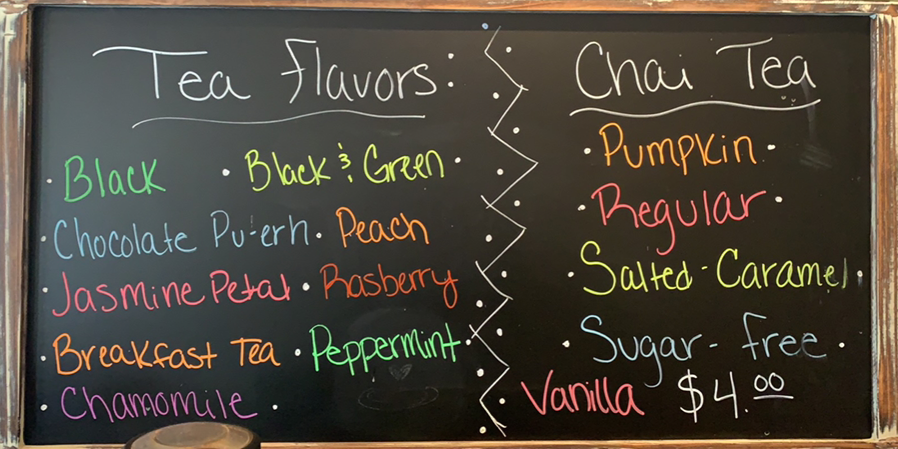 Tea Flavors:
• Black • Black & Green •
• Chocolate Pu-erh • Peach
• Jasmine Petal • Rasberry
• Breakfast Tea • Peppermint •
• Chamomile •
Chai Tea
• Pumpkin •
• Regular •
• Salted-Caramel •
• Sugar-free •
• Vanilla $4.00